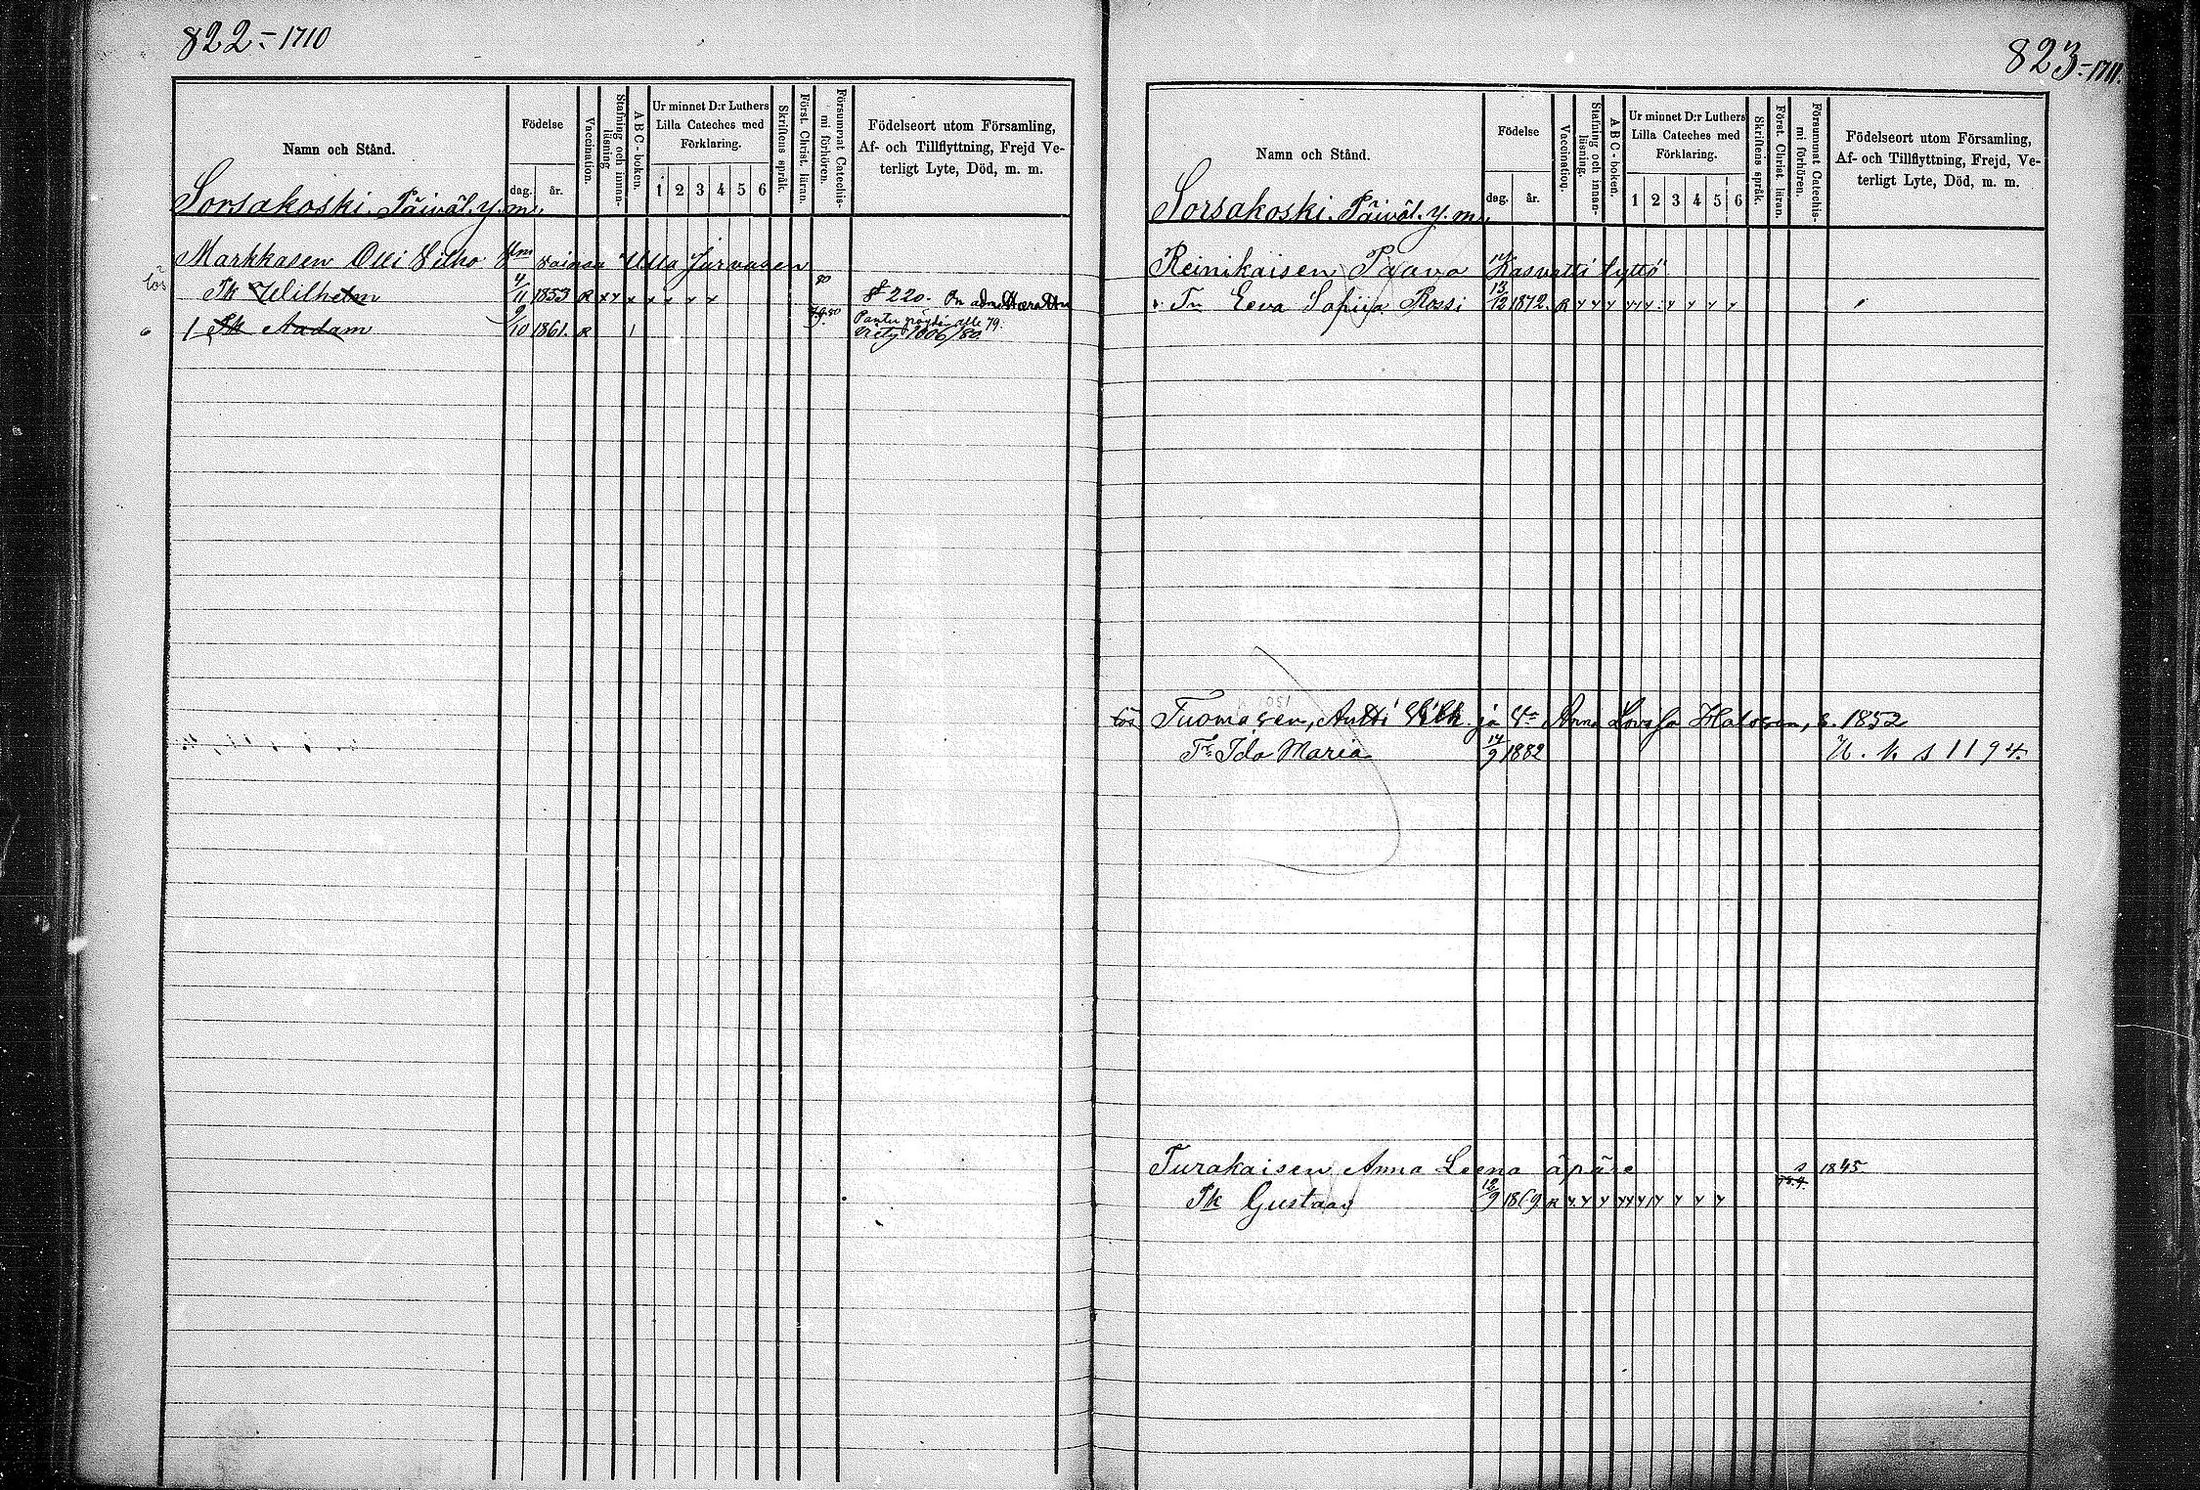 822 = 1710
Namn och Stånd.
Födelse
dag.
år.
Vaccination.
Stafning och innan-
läsning
ABC-boken.
Ur minnet D:r Luthers
Lilla Cateches med
Förklaring.
1 2 3 4 5 6
Skriftens språk.
Först. Christ. läran.
Försummat Catechis-
mi förhören.
Födelseort utom Församling,
Af- och Tillflyttning, Frejd Ve-
terligt Lyte, Död, m. m.
Sorsakoski. Päiväl. y. m.
Markkasen Olli Vilho Ulla
Pk Wilhelm 4/11 1853 R x x x x x x x 80 S 220. On
1 Pk Aadam 9/10 1861. R 1 1006/80
823 = 1711.
Namn och Stånd.
Födelse
dag.
år.
Vaccination.
Stafning och innan-
läsning.
ABC-boken.
Ur minnet D:r Luthers
Lilla Cateches med
Förklaring.
1 2 3 4 5 6
Skriftens språk.
Först. Christ. läran.
Försummat Catechis-
mi förhören.
Födelseort utom Församling,
Af- och Tillflyttning, Frejd, Ve-
terligt Lyte, Död, m. m.
Sorsakoski. Päiväl. y. m.
Reinikaisen Paavo Kasvatti tyttö
Tr Eeva Sofiija Rossi 13/12 1872. R
lös Tuomasen, Antti Vilh. ja Vo Anna Lovisa Halosen, s. 1852
Tr Ida Maria 14/9 1882 U. k s 1194.
Turakaisen Anna Leena äpäre s 1845
Pk Gustaav 12/9 1869. R